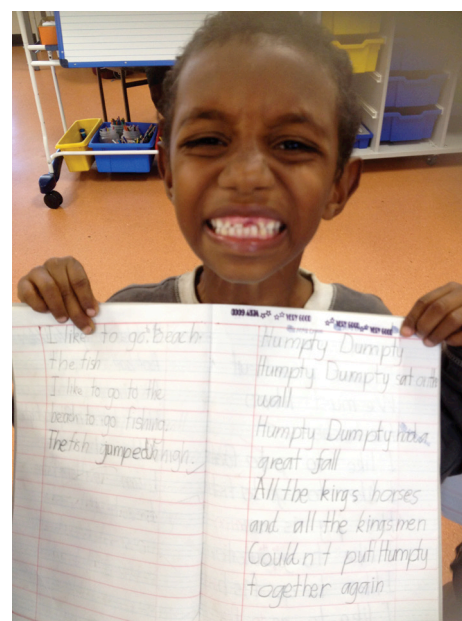 I like to go Beach
the fish
I like to go to the
beach to go fishing.
The fish jumped high.
VERY GOOD VERY GOOD VERY GOOD
Humpty Dumpty
Humpty Dumpty sat on the
wall
Humpty Dumpty had a
great fall
All the kings horses
and all the kings men
Couldn't put Humpty
together again